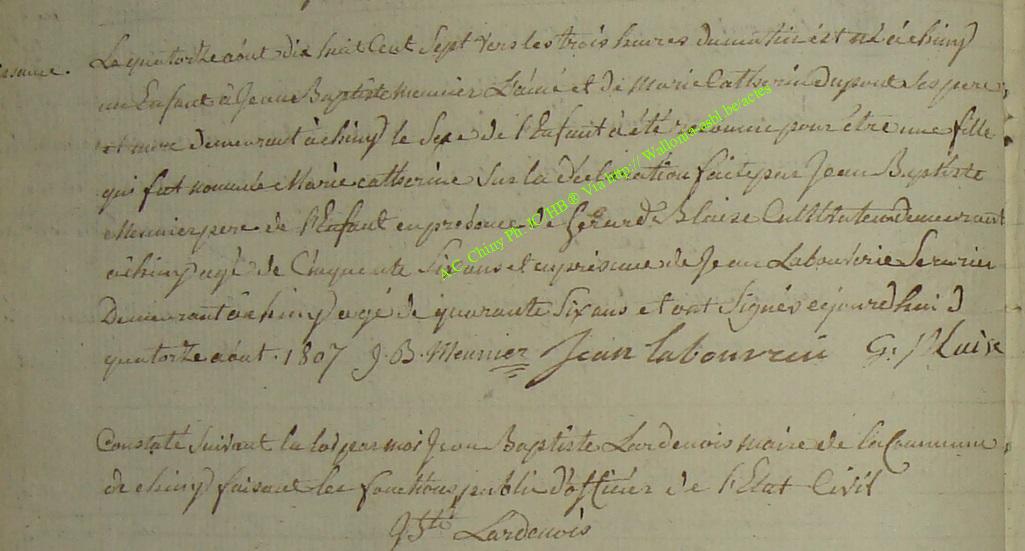 Le quatorze aout dix huit Cent Sept vers les trois heures du matin est né à chiny
issance.
un Enfant à Jean Baptiste Meunier L'ainé et de Marie Catherine Dupont ses pere
et mere demeurant à chiny le Sexe de l'Enfant a été reconnu pour être une fille
qui fut nommée Marie catherine Sur la déclaration faite par Jean Baptiste
Meunier pere de l'Enfant en presence de Gerard Blaise Cultivateur demeurant
à chiny agé de Cinquante Six ans et en présence de Jean Labouverie Serurier
Demeurant à chiny agé de quarante Six ans et ont Signés cejourd'hui
quatorze aout. 1807 J. B. Meunier Jean labouvrin G: Blaise
Constaté Suivant la loi par moi Jean Baptiste Lardenois maire de la Commune
de chiny faisant les fonctions public d'officier de l'Etat Civil
J Bte Lardenois
A.C. Chiny Ph. JC/HB ® Via http:// Wallonia-asbl.be/actes